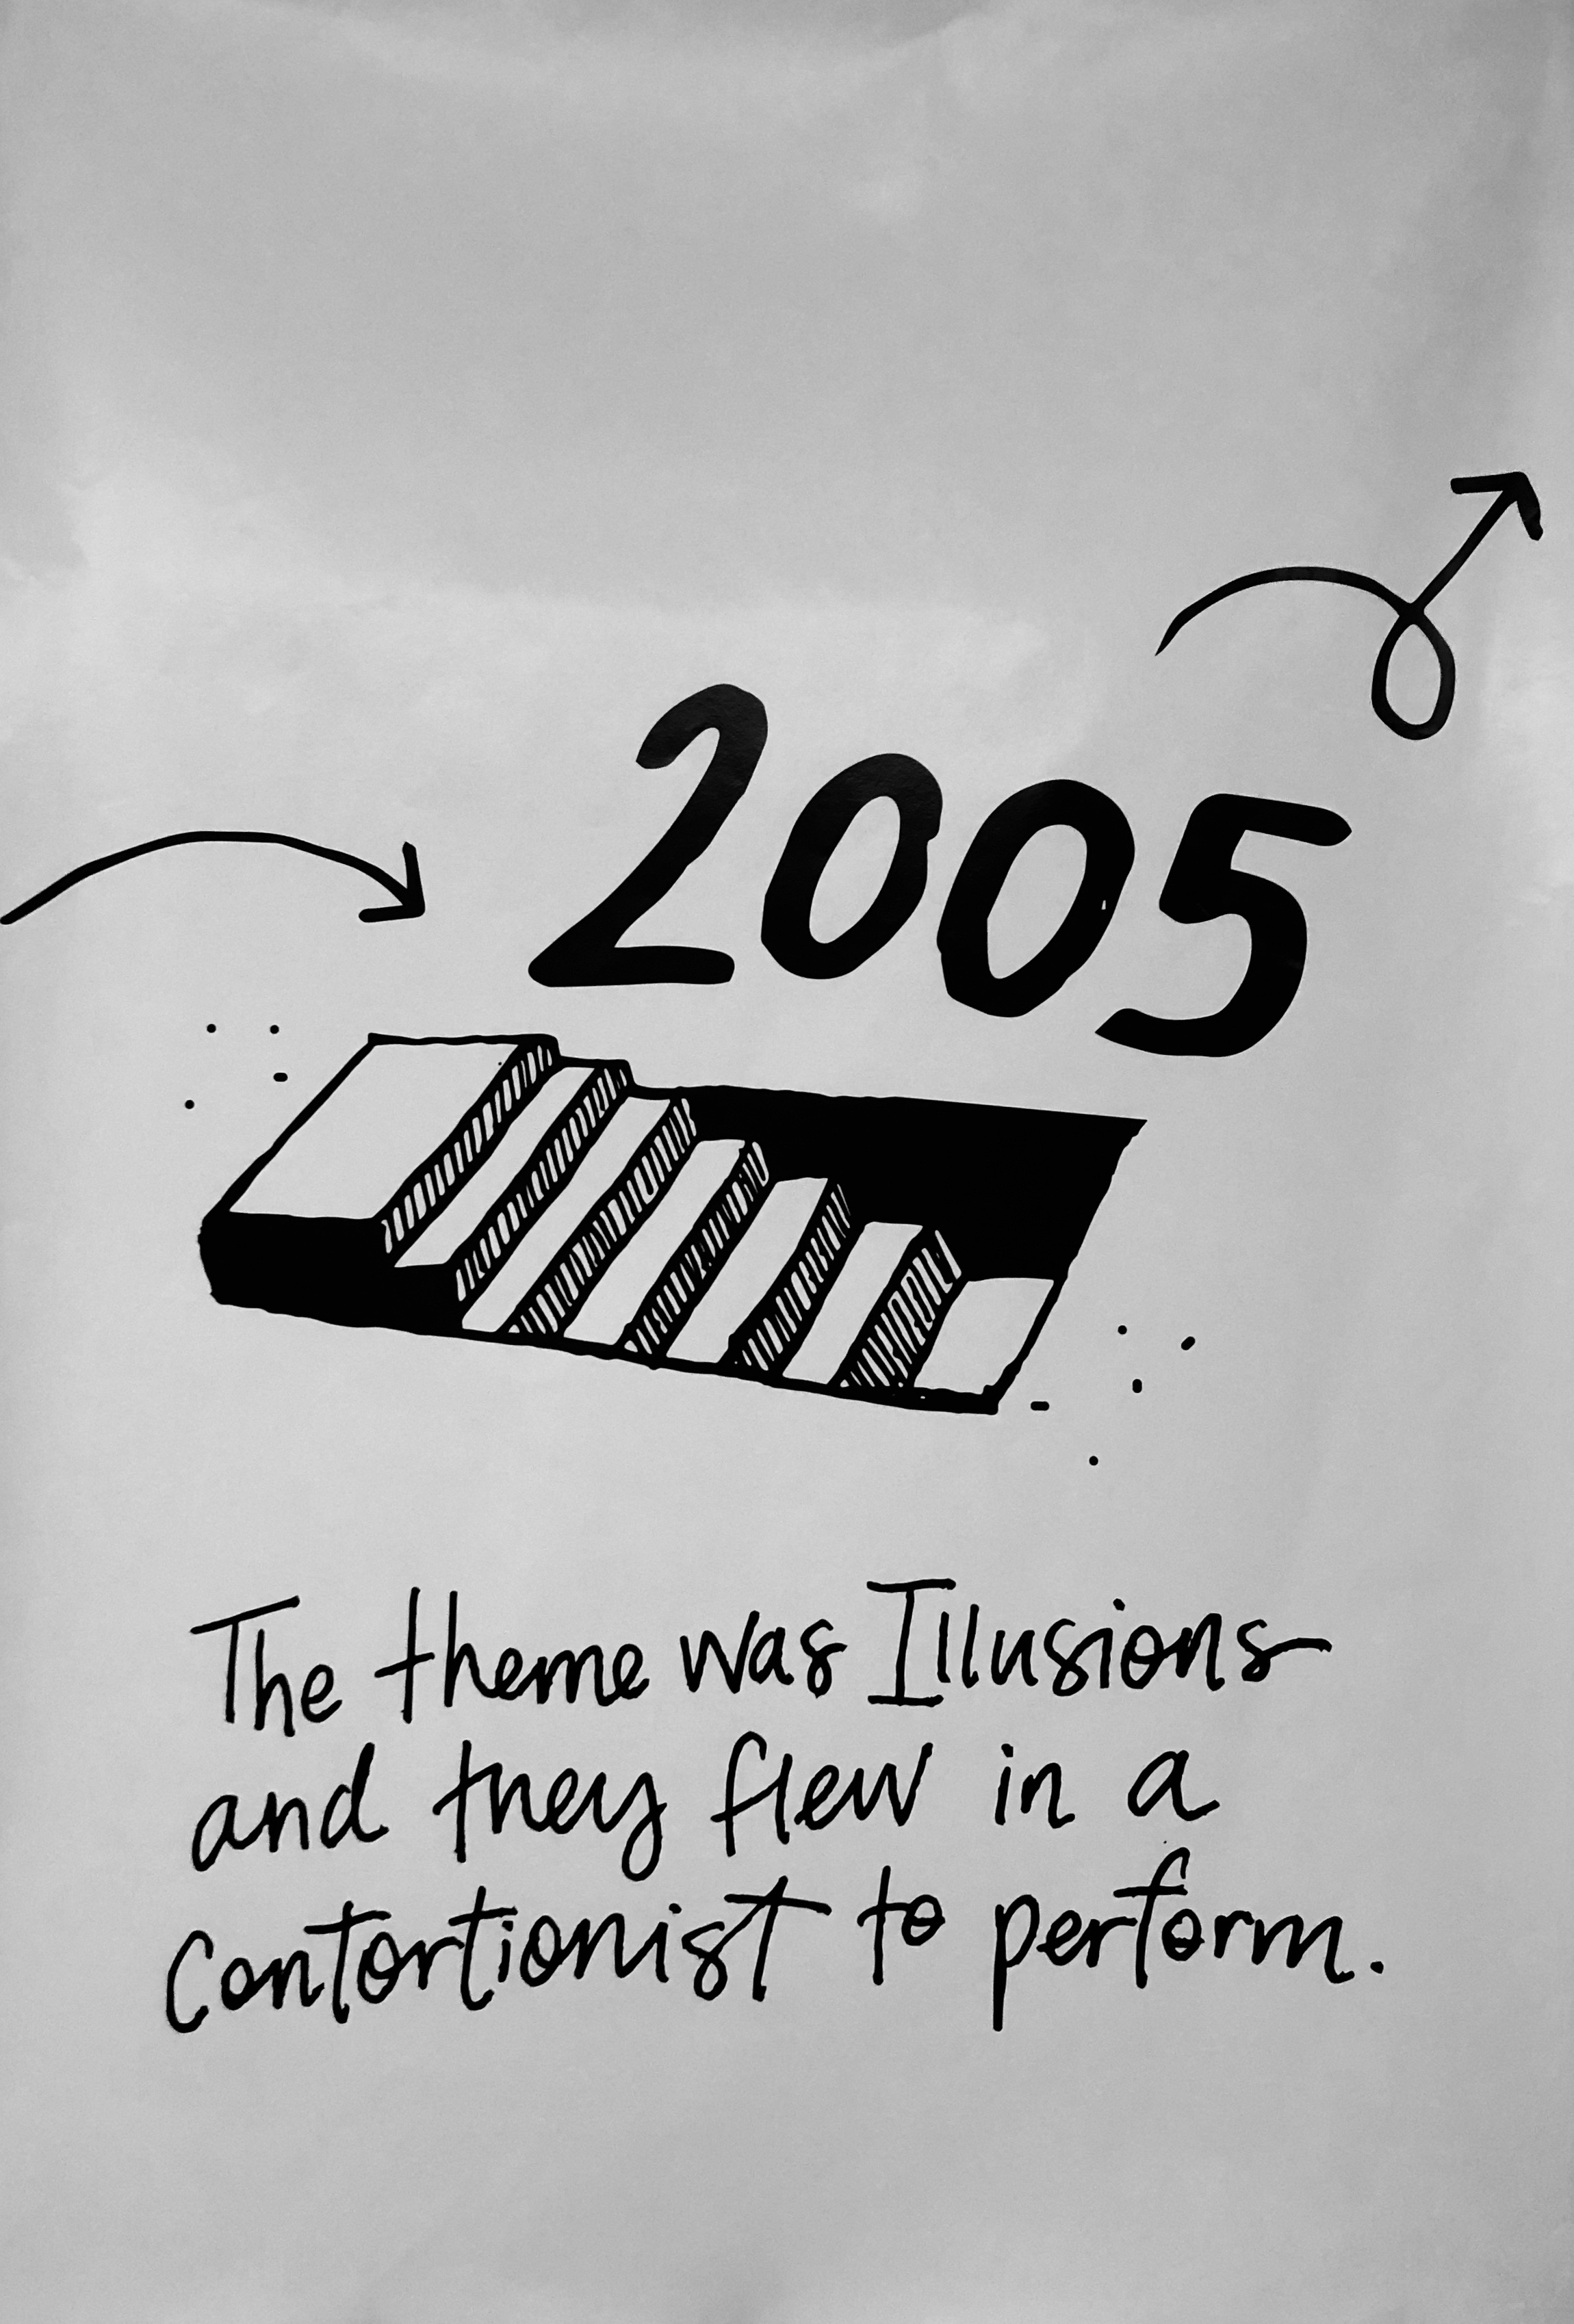 2005
The theme was Illusions
and they flew in a
contortionist to perform.